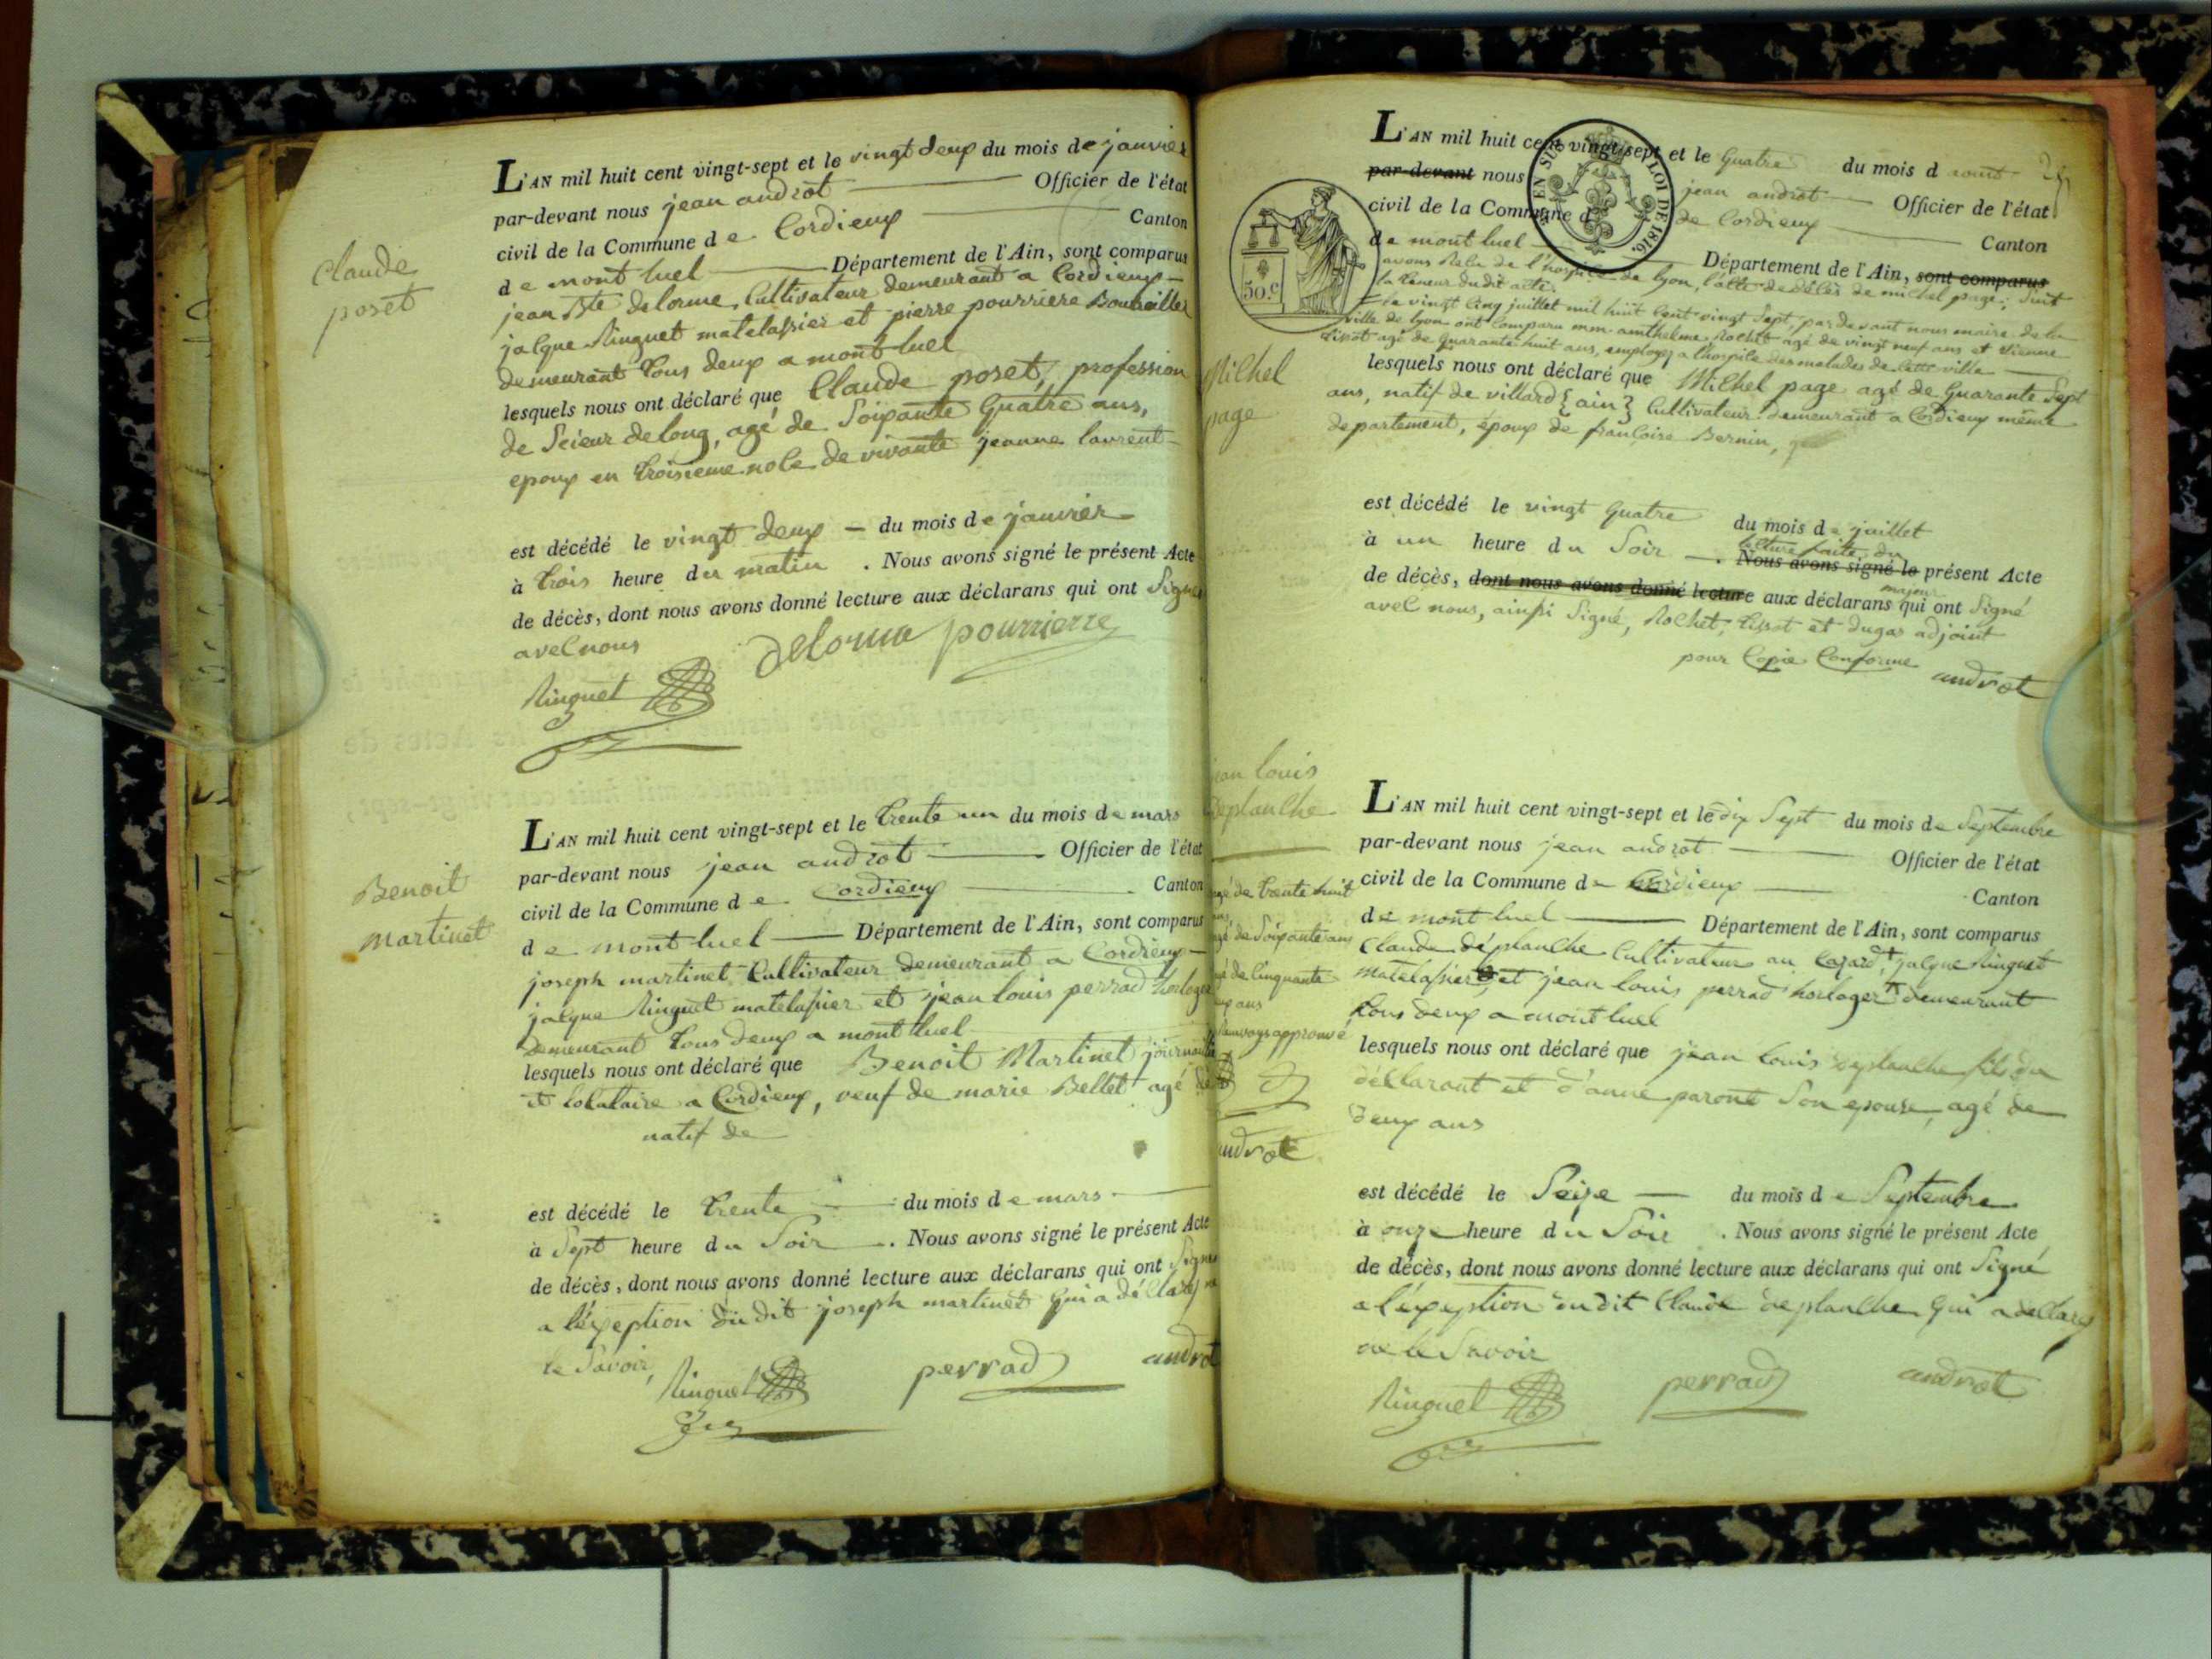 Claude
poset
L'AN mil huit cent vingt-sept et le vingt deux du mois de janvier
par-devant nous jean androt Officier de l'état
civil de la Commune de Cordieux Canton
de mont luel Département de l'Ain, sont comparus
jean Bte delorme, Cultivateur demeurant a Cordieux
jacque Ringuet matelassier et pierre pourriere
demeurant tous deux a mont luel
lesquels nous ont déclaré que Claude poset, profession
de Scieur delong, agé de Soixante Quatre ans,
epoux en troisieme noce de vivante jeanne laurent
est décédé le vingt deux du mois de janvier
à trois heure du matin . Nous avons signé le présent Acte
de décès, dont nous avons donné lecture aux déclarans qui ont Signé
avec nous
delorme pourrierre
Ringuet
Benoit
martinet
L'AN mil huit cent vingt-sept et le trente un du mois de mars
par-devant nous jean androt Officier de l'état
civil de la Commune de Cordieux Canton
de mont luel Département de l'Ain, sont comparus
joseph martinet Cultivateur demeurant a Cordieux
jacque Ringuet matelassier et jean louis perrad horloger
demeurant tous deux a mont luel
lesquels nous ont déclaré que Benoit Martinet
et locataire a Cordieux, veuf de marie Bellet agé de
natif de
est décédé le trente du mois de mars
à Sept heure du Soir . Nous avons signé le présent Acte
de décès, dont nous avons donné lecture aux déclarans qui ont Signé
a léxception du dit joseph martinet qui a déclaré ne
le Savoir,
Ringuet perrad androt
L'AN mil huit cent vingt-sept et le Quatre du mois d aout
par-devant nous jean androt Officier de l'état
civil de la Commune de Cordieux Canton
de mont luel Département de l'Ain, sont comparus
avons Reçu de l'hospice de lyon, l'acte de décès de michel page; Suit
la teneur du dit acte.
le vingt Cinq juillet mil huit Cent vingt Sept, par devant nous maire de la
ville de lyon ont Comparu mm anthelme Rochet agé de vingt neuf ans et
agé de Quarante huit ans, employés a lhospice des malades de cette ville
Michel
page
lesquels nous ont déclaré que Michel page agé de Quarante Sept
ans, natif de villard {ain} Cultivateur demeurant a Cordieux même
departement, époux de françoise Bernin,
est décédé le vingt Quatre du mois de juillet
lecture faite du
à un heure du Soir . Nous avons signé le présent Acte
majeurs
de décès, dont nous avons donné lecture aux déclarans qui ont Signé
avec nous, ainsi Signé, Rochet, et dugas adjoint
pour Copie Conforme androt
jean louis
deplanche
L'AN mil huit cent vingt-sept et le dix Sept du mois de Septembre
par-devant nous jean androt Officier de l'état
civil de la Commune de Cordieux Canton
de mont luel Département de l'Ain, sont comparus
Claude déplanche Cultivateur au jacque Ringuet
matelassier et jean louis perrad horloger demeurant
tous deux a mont luel
agé de trente huit
ans,
agé de Soixante ans
agé de Cinquante
approuvé
androt
lesquels nous ont déclaré que jean louis deplanche fils du
déclarant et d'anne paront Son epouse, agé de
deux ans
est décédé le Seize du mois de Septembre
à onze heure du Soir . Nous avons signé le présent Acte
de décès, dont nous avons donné lecture aux déclarans qui ont Signé
a léxception du dit Claude deplanche qui a declaré
ne le Savoir
Ringuet perrad androt
50.c
EN SUS LOI DE 1816.